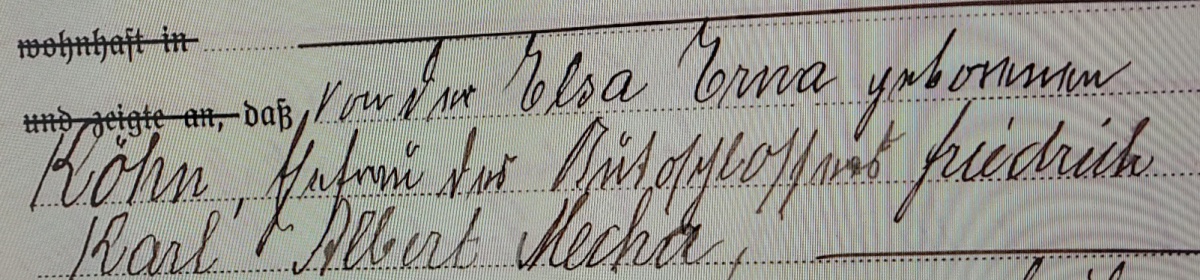 wohnhaft in
und zeigte an, daß von der Elsa Erna geborenen
Köhn, Ehefrau des Autoschlossers Friedrich
Karl Albert Mecha,